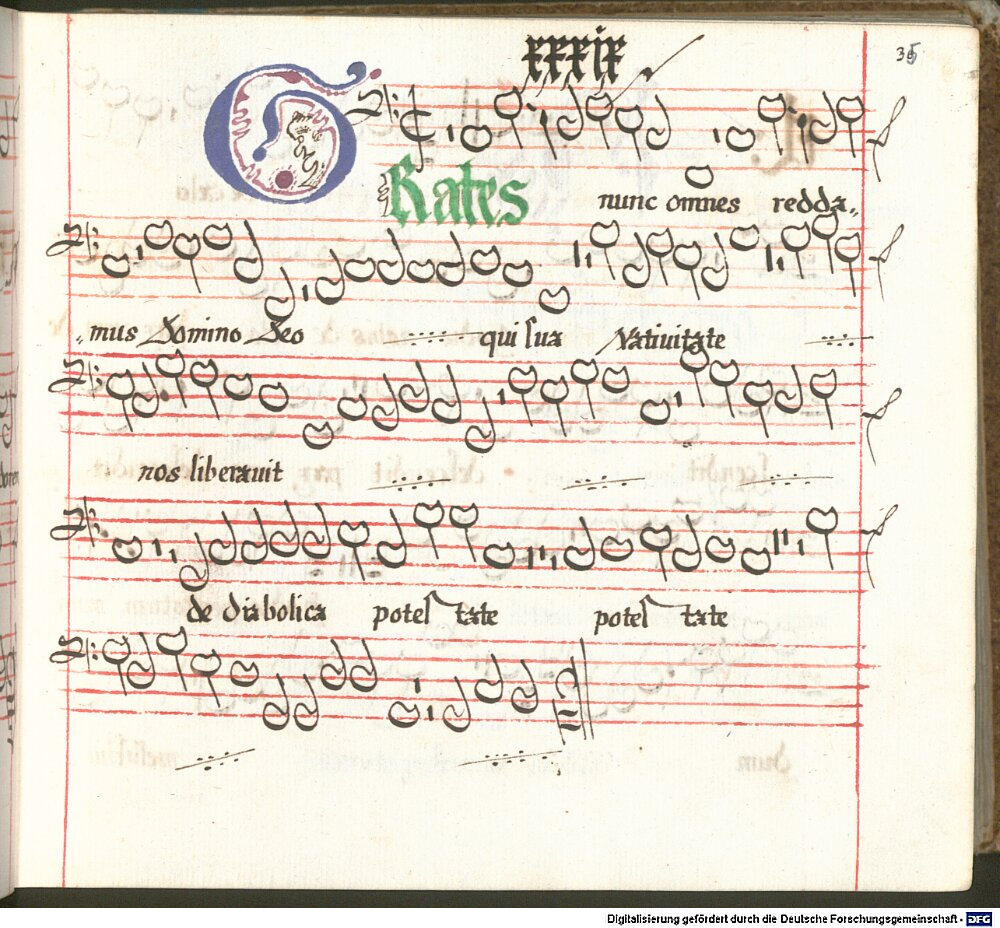 xxxix
35
GRates nunc omnes redda„
„mus Domino Deo qui sua Natiuitate
nos liberauit
de diabolica potestate potestate
Digitalisierung gefördert durch die Deutsche Forschungsgemeinschaft - DFG